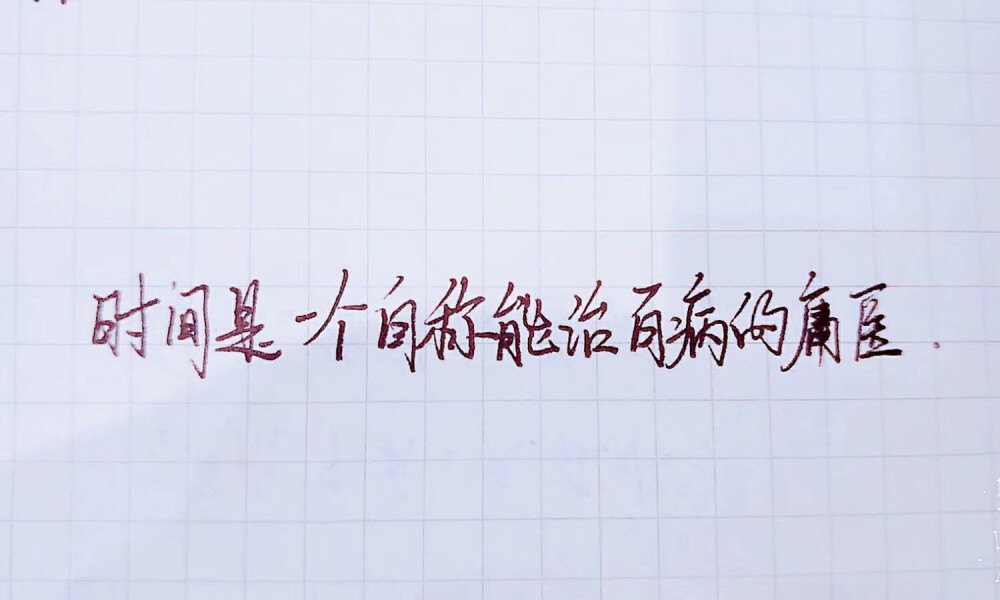 时间是一个自称能治百病的庸医.